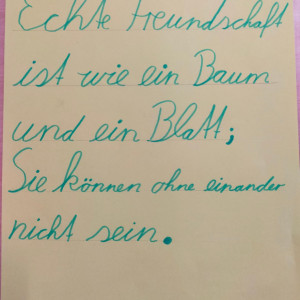 Echte Freundschaft
ist wie ein Baum
und ein Blatt;
Sie können ohne einander
nicht sein.